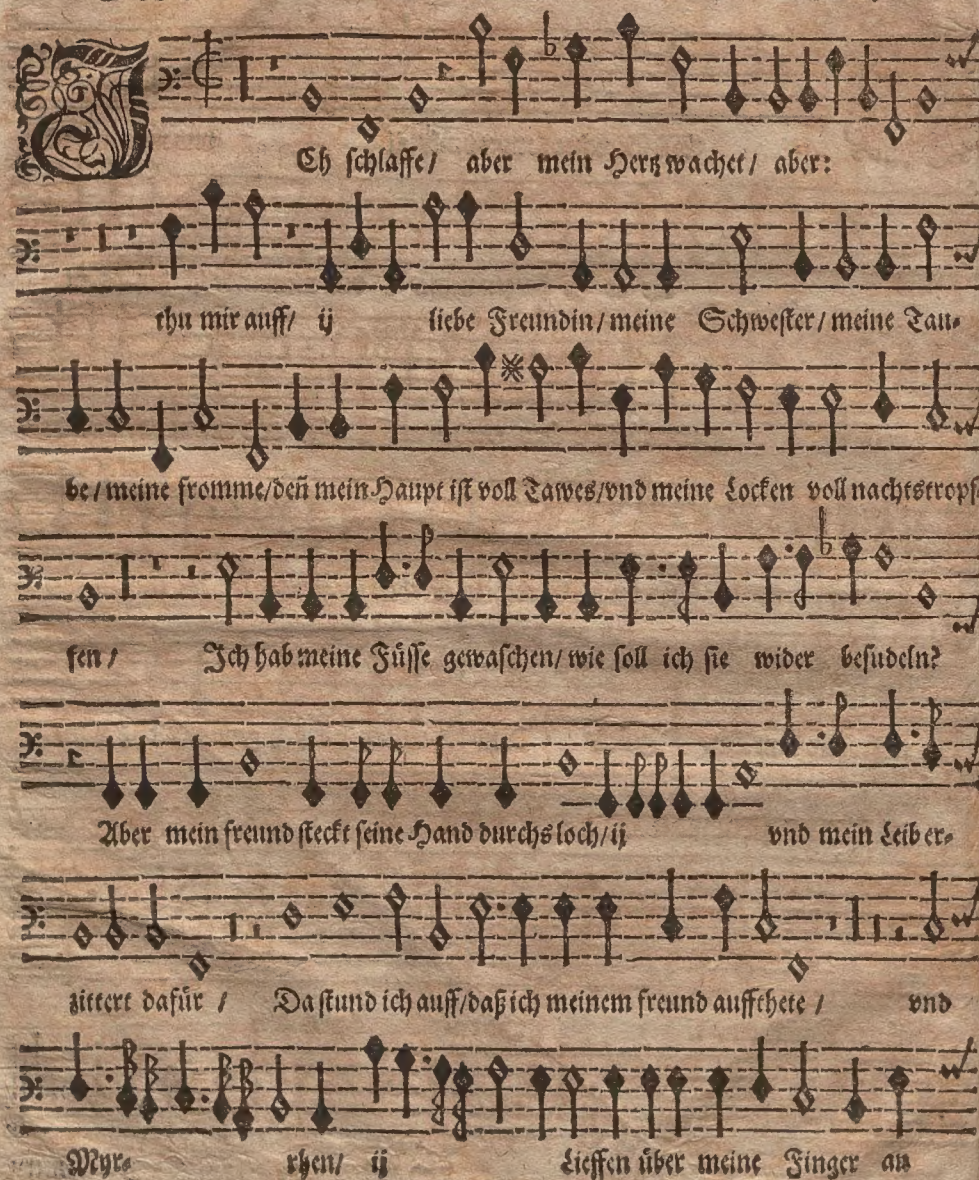 ICh schlaffe / aber mein Hertz wachet / aber:
thu mir auff / ij liebe Freundin / meine Schwester / meine Tau⸗
be / meine fromme / deñ mein Haupt ist voll Tawes / vnd meine Locken voll nachtstropf
fen / Ich hab meine Füsse gewaschen / wie soll ich sie wider besudeln?
Aber mein freund steckt seine Hand durchs loch / ij vnd mein Leib er⸗
zittert dafür / Da stund ich auff / daß ich meinem freund auffthete / vnd
Myr⸗ rhen / ij Lieffen über meine Finger an